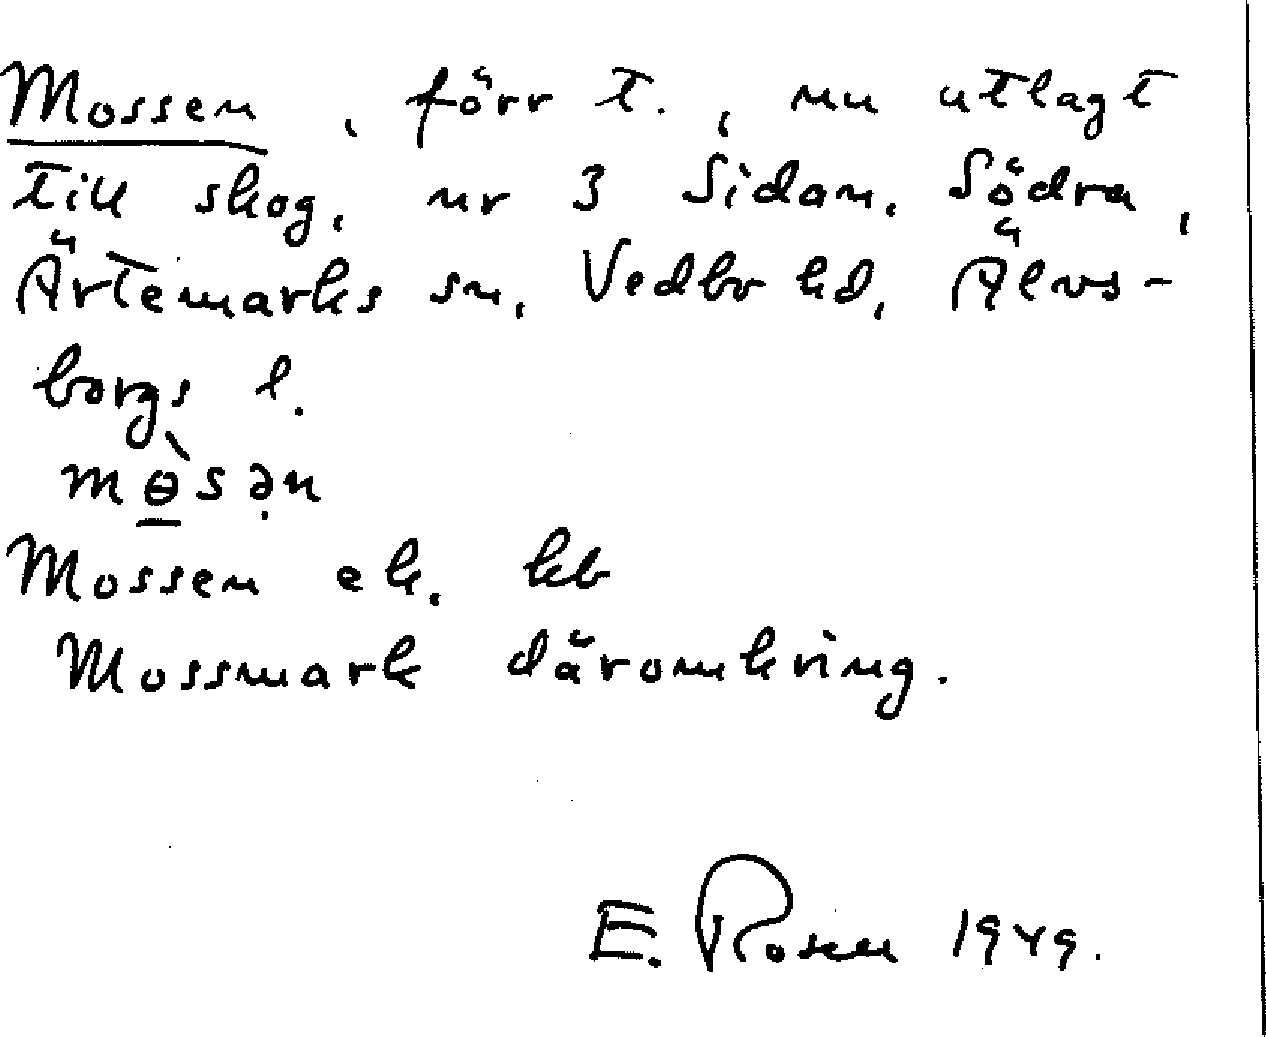 Mossen, förr t., nu utlagt
till skog, nr 3 Sidan. Södra,
Ärtemarks sn, Vedbo hd, Älvs-
borgs l.
mɵ̀sən
Mossen ek. kb
Mossmark däromkring.
E. Rosen 1949.